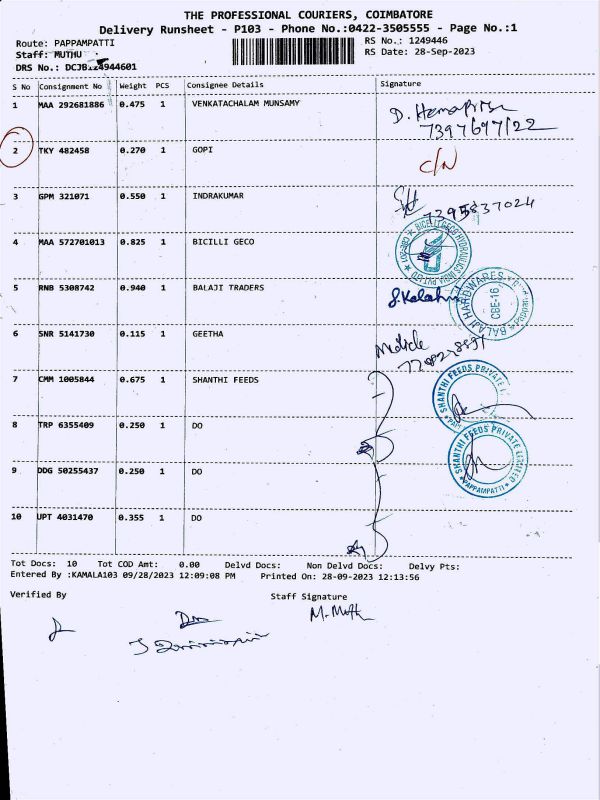 THE PROFESSIONAL COURIERS, COIMBATORE
Delivery Runsheet - P103 - Phone No.:0422-3505555 - Page No.:1
Route: PAPPAMPATTI
RS No.: 1249446
Staff: MUTHU
RS Date: 28-Sep-2023
DRS No.: DCJB124944601
S No Consignment No Weight PCS Consignee Details Signature
1 MAA 292681886 0.475 1 VENKATACHALAM MUNSAMY
2 TKY 482458 0.270 1 GOPI C/N
3 GPM 321071 0.550 1 INDRAKUMAR
7395837024
4 MAA 572701013 0.825 1 BICILLI GECO
5 RNB 5308742 0.940 1 BALAJI TRADERS
BALAJI HARDWARES
CBE-16
6 SNR 5141730 0.115 1 GEETHA
7 CMM 1005844 0.675 1 SHANTHI FEEDS
SHANTHI FEEDS PRIVATE
8 TRP 6355409 0.250 1 DO
SHANTHI FEEDS PRIVATE LIMITED
PAPPAMPATTI
9 DDG 50255437 0.250 1 DO
10 UPT 4031470 0.355 1 DO
Tot Docs: 10 Tot COD Amt: 0.00 Delvd Docs: Non Delvd Docs: Delvy Pts:
Entered By :KAMALA103 09/28/2023 12:09:08 PM Printed On: 28-09-2023 12:13:56
Verified By Staff Signature
M. Muth